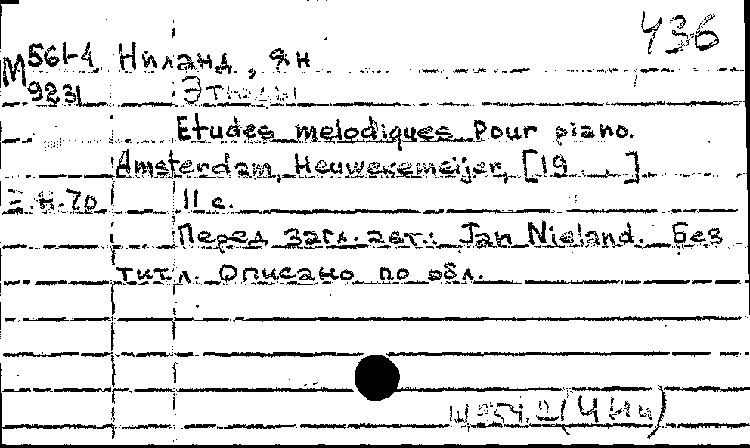 436
М 561-4 Ниланд, Ян
9231 Этюды
Etudes melodiques pour piano.
Amsterdam, Heuwekemeijer, [19 . .].
Н-70 11 с.
Перед загл. авт.: Jan Nieland. Без
титл. Описано по обл.